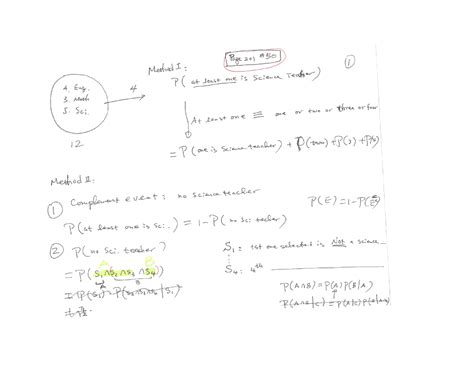 Page 201 #50
Method I:
P( at least one is Science Teacher )
①
4. Eng.
3. Math
5. Sci.
4
12
At least one ≡ one or two or three or four
= P( one is Science teacher ) + P(two) + P(3) + P(4)
Method II:
① Complement event: no science teacher
P(E) = 1-P(E̅)
P( at least one is Sci. ) = 1-P( no Sci teacher )
② P( no Sci. teacher )
S₁: 1st one selected is Not a science
S₄: 4th
= P( S₁∩S₂∩S₃∩S₄ )
= P(S₁) P(S₂∩S₃∩S₄|S₁)
P(A∩B) = P(A) P(B|A)
P(A∩B|C) = P(A|C) P(B|A∩C)